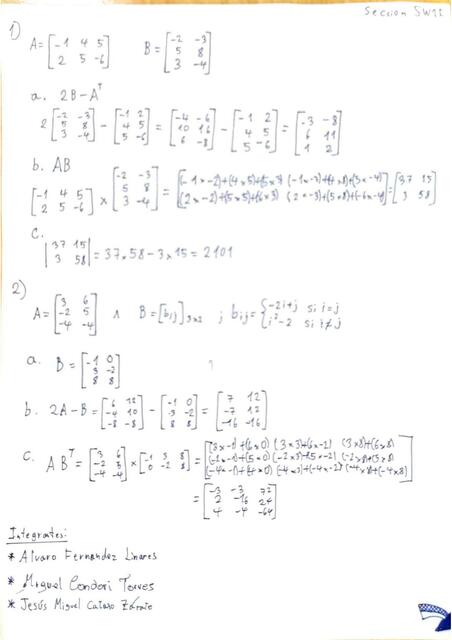 Sección SW11
1)
A = [-1 4 5; 2 5 -6] B = [-2 -3; 5 8; 3 -4]
a. 2B - A^T
2 [-2 -3; 5 8; 3 -4] - [-1 2; 4 5; 5 -6] = [-4 -6; 10 16; 6 -8] - [-1 2; 4 5; 5 -6] = [-3 -8; 6 11; 1 2]
b. AB
[-1 4 5; 2 5 -6] × [-2 -3; 5 8; 3 -4] = [(-1×-2)+(4×5)+(5×3) (-1×-3)+(4×8)+(5×-4); (2×-2)+(5×5)+(6×3) (2×-3)+(5×8)+(-6×-4)] = [37 15; 3 58]
c.
|37 15; 3 58| = 37×58 - 3×15 = 2101
2)
A = [3 6; -2 5; -4 -4] ∧ B = [bij]3×2 ; bij = {-2i+j si i=j; i²-2 si i≠j
a. B = [-1 0; 3 -2; 8 8]
b. 2A - B = [6 12; -4 10; -8 -8] - [-1 0; 3 -2; 8 8] = [7 12; -7 12; -16 -16]
c. AB^T = [3 6; -2 5; -4 -4] × [-1 3 8; 0 -2 8] = [(3×-1)+(6×0) (3×3)+(6×-2) (3×8)+(6×8); (-2×-1)+(5×0) (-2×3)+(5×-2) (-2×8)+(5×8); (-4×-1)+(-4×0) (-4×3)+(-4×-2) (-4×8)+(-4×8)]
= [-3 -3 72; 2 -16 24; 4 -4 -64]
Integrantes:
* Alvaro Fernandez Linares
* Miguel Condori Torres
* Jesús Miguel Zárate